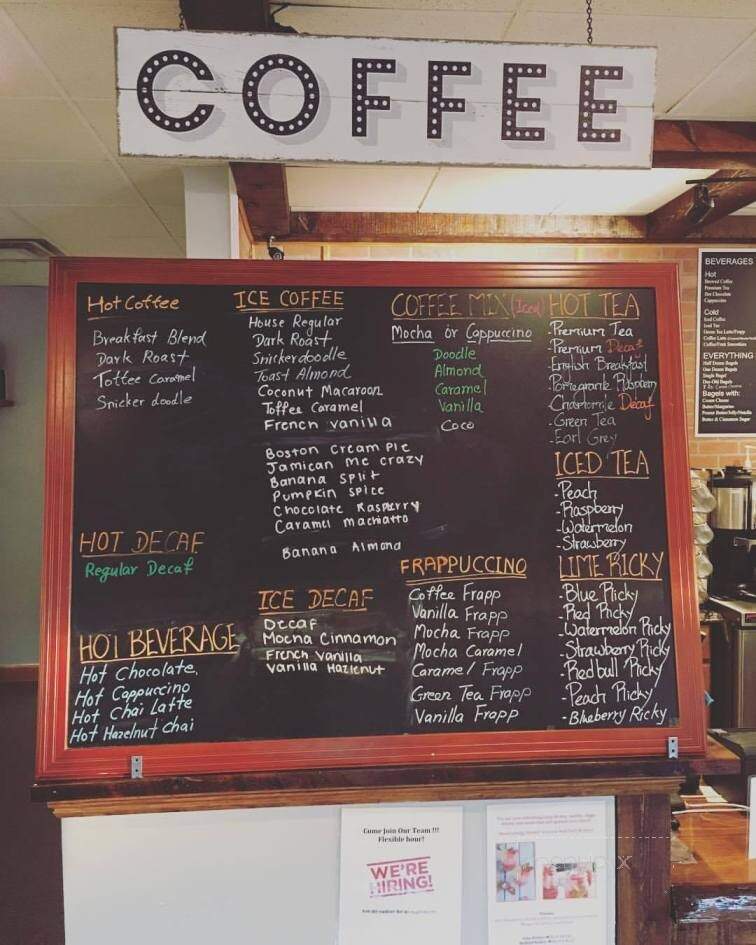 COFFEE
Hot Coffee
Breakfast Blend
Dark Roast
Toffee Caramel
Snicker doodle
HOT DECAF
Regular Decaf
HOT BEVERAGE
Hot Chocolate
Hot Cappuccino
Hot Chai Latte
Hot Hazelnut Chai
ICE COFFEE
House Regular
Dark Roast
Snickerdoodle
Toast Almond
Coconut Macaroon
Toffee Caramel
French vanilla
Boston Cream Pie
Jamican me crazy
Banana Split
Pumpkin spice
Chocolate Raspberry
Caramel machiatto
Banana Almond
ICE DECAF
Decaf
Mocha Cinnamon
French Vanilla
Vanilla Hazelnut
COFFEE MIX (Iced)
Mocha or Cappuccino
Doodle
Almond
Caramel
Vanilla
Coco
FRAPPUCCINO
Coffee Frapp
Vanilla Frapp
Mocha Frapp
Mocha Caramel
Caramel Frapp
Green Tea Frapp
Vanilla Frapp
HOT TEA
-Premium Tea
-Premium Decaf
-English Breakfast
-Chamomile Decaf
-Green Tea
-Earl Grey
ICED TEA
-Peach
-Raspberry
-Watermelon
-Strawberry
LIME RICKY
-Blue Ricky
-Red Ricky
-Watermelon Ricky
-Strawberry Ricky
-Redbull Ricky
-Peach Ricky
-Blueberry Ricky
BEVERAGES
Hot
Brewed Coffee
Premium Tea
Hot Chocolate
Cappuccino
Cold
Iced Coffee
Iced Tea
EVERYTHING
Bagels with:
Cream Cheese
Come Join Our Team !!!
Flexible hour!
WE'RE
HIRING!